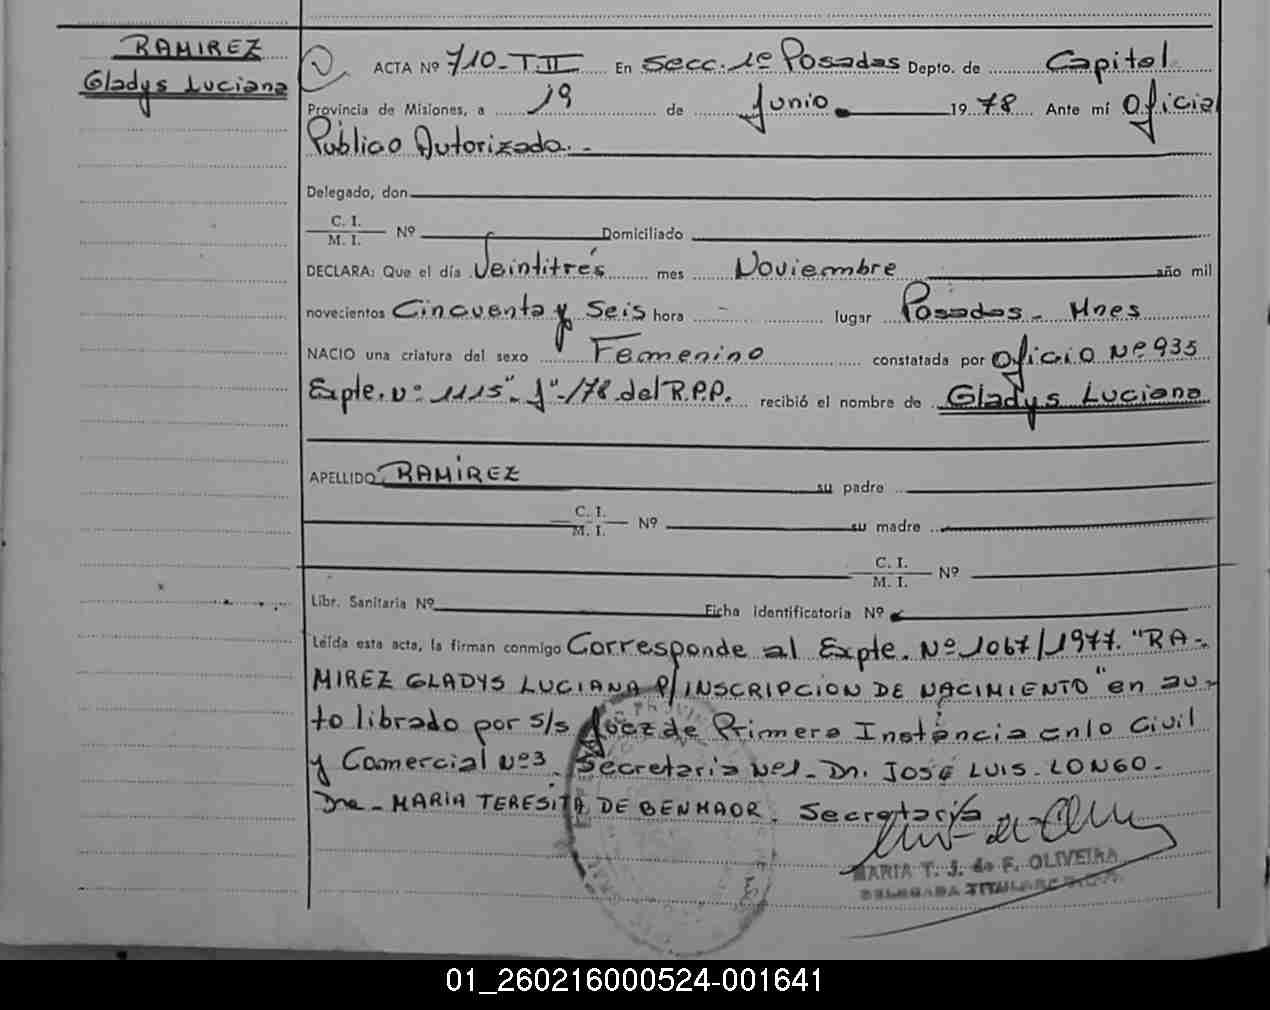 RAMIREZ
Gladys Luciana
ACTA Nº 710-T.II En Secc. 1º Posadas Depto. de Capital
Provincia de Misiones, a 19 de Junio 1978 Ante mí Oficial
Público Autorizado.-
Delegado, don
C. I.
M. I. Nº Domiciliado
DECLARA: Que el día Veintitrés mes Noviembre año mil
novecientos Cincuenta y Seis hora - lugar Posadas - Mnes
NACIO una criatura del sexo Femenino constatada por Oficio Nº 935
Expte. Nº 1115"-J"-/78 del R.P.P. recibió el nombre de Gladys Luciana
APELLIDO RAMIREZ su padre
C. I.
M. I. Nº su madre
C. I.
M. I. Nº
Libr. Sanitaria Nº Ficha identificatoria Nº
Leída esta acta, la firman conmigo Corresponde al Expte. Nº 1067/1977. "RA-
MIREZ GLADYS LUCIANA P/INSCRIPCION DE NACIMIENTO" en au-
to librado por s/s Juez de Primera Instancia en lo Civil
y Comercial Nº3. Secretaria Nº1- Dr. JOSÉ LUIS - LONGO -
Dra - MARIA TERESITA DE BENMAOR. Secretaria
MARIA T. J. de F. OLIVEIRA
DELEGADA TITULAR
01_260216000524-001641